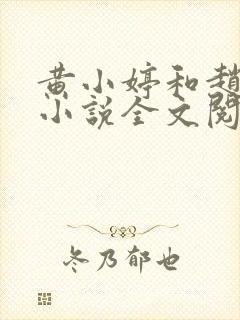 黄小婷和趙
小説全文閱
冬乃郁也